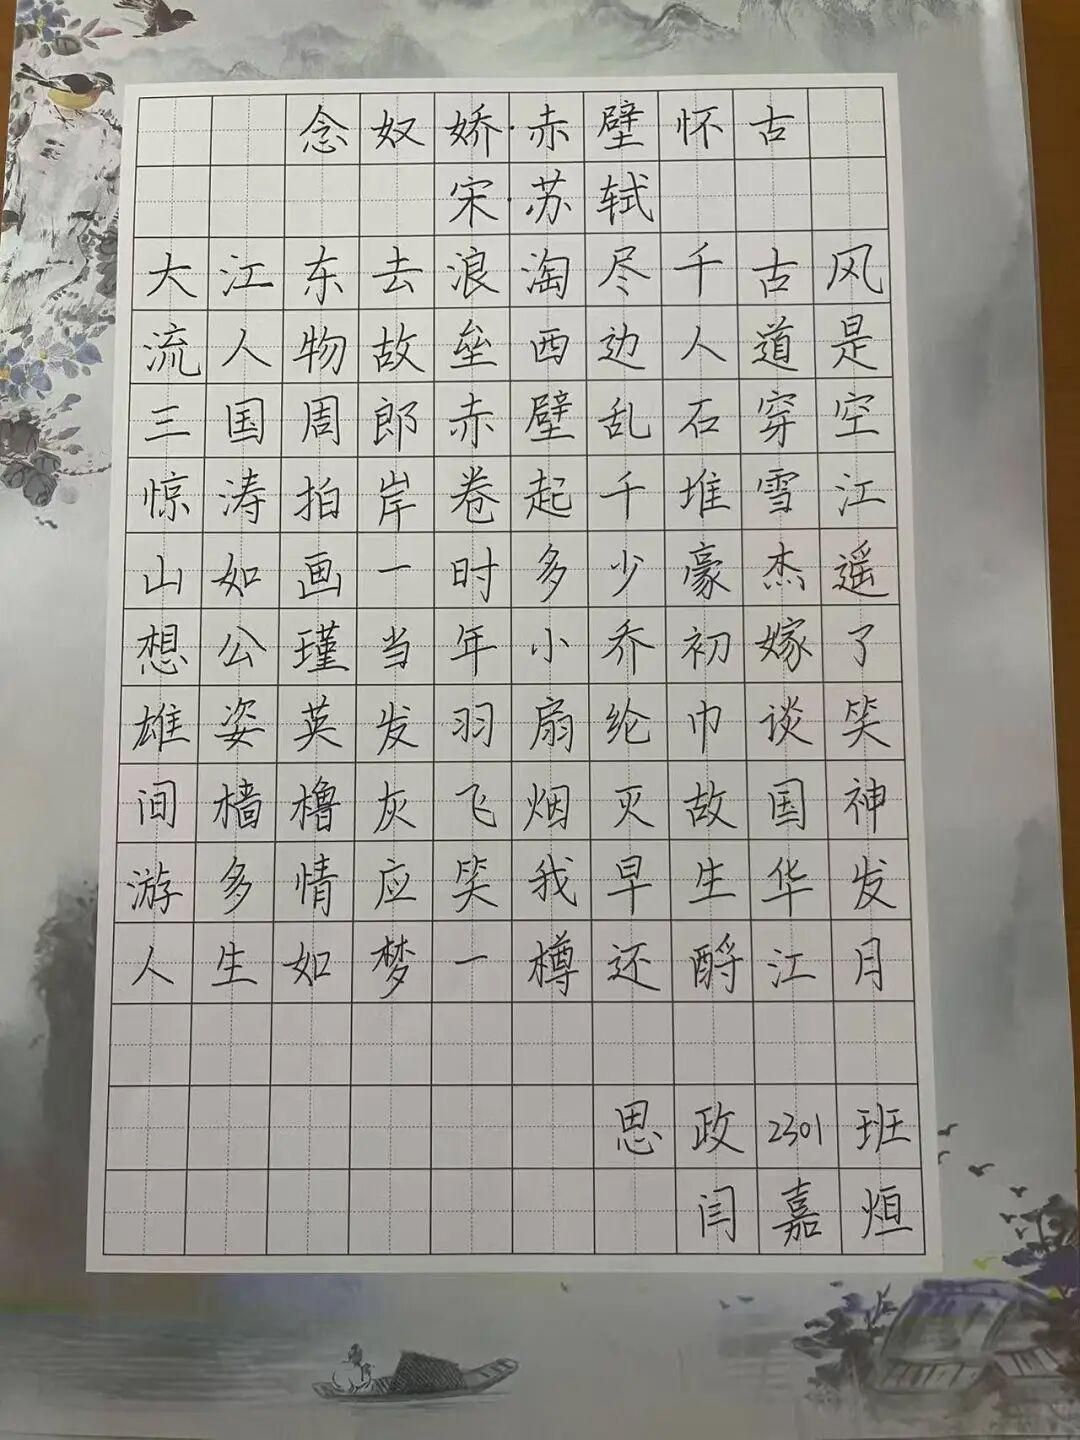 念奴娇·赤壁怀古
宋·苏轼
大江东去浪淘尽千古风
流人物故垒西边人道是
三国周郎赤壁乱石穿空
惊涛拍岸卷起千堆雪江
山如画一时多少豪杰遥
想公瑾当年小乔初嫁了
雄姿英发羽扇纶巾谈笑
间樯橹灰飞烟灭故国神
游多情应笑我早生华发
人生如梦一樽还酹江月
思政2301班
闫嘉烜